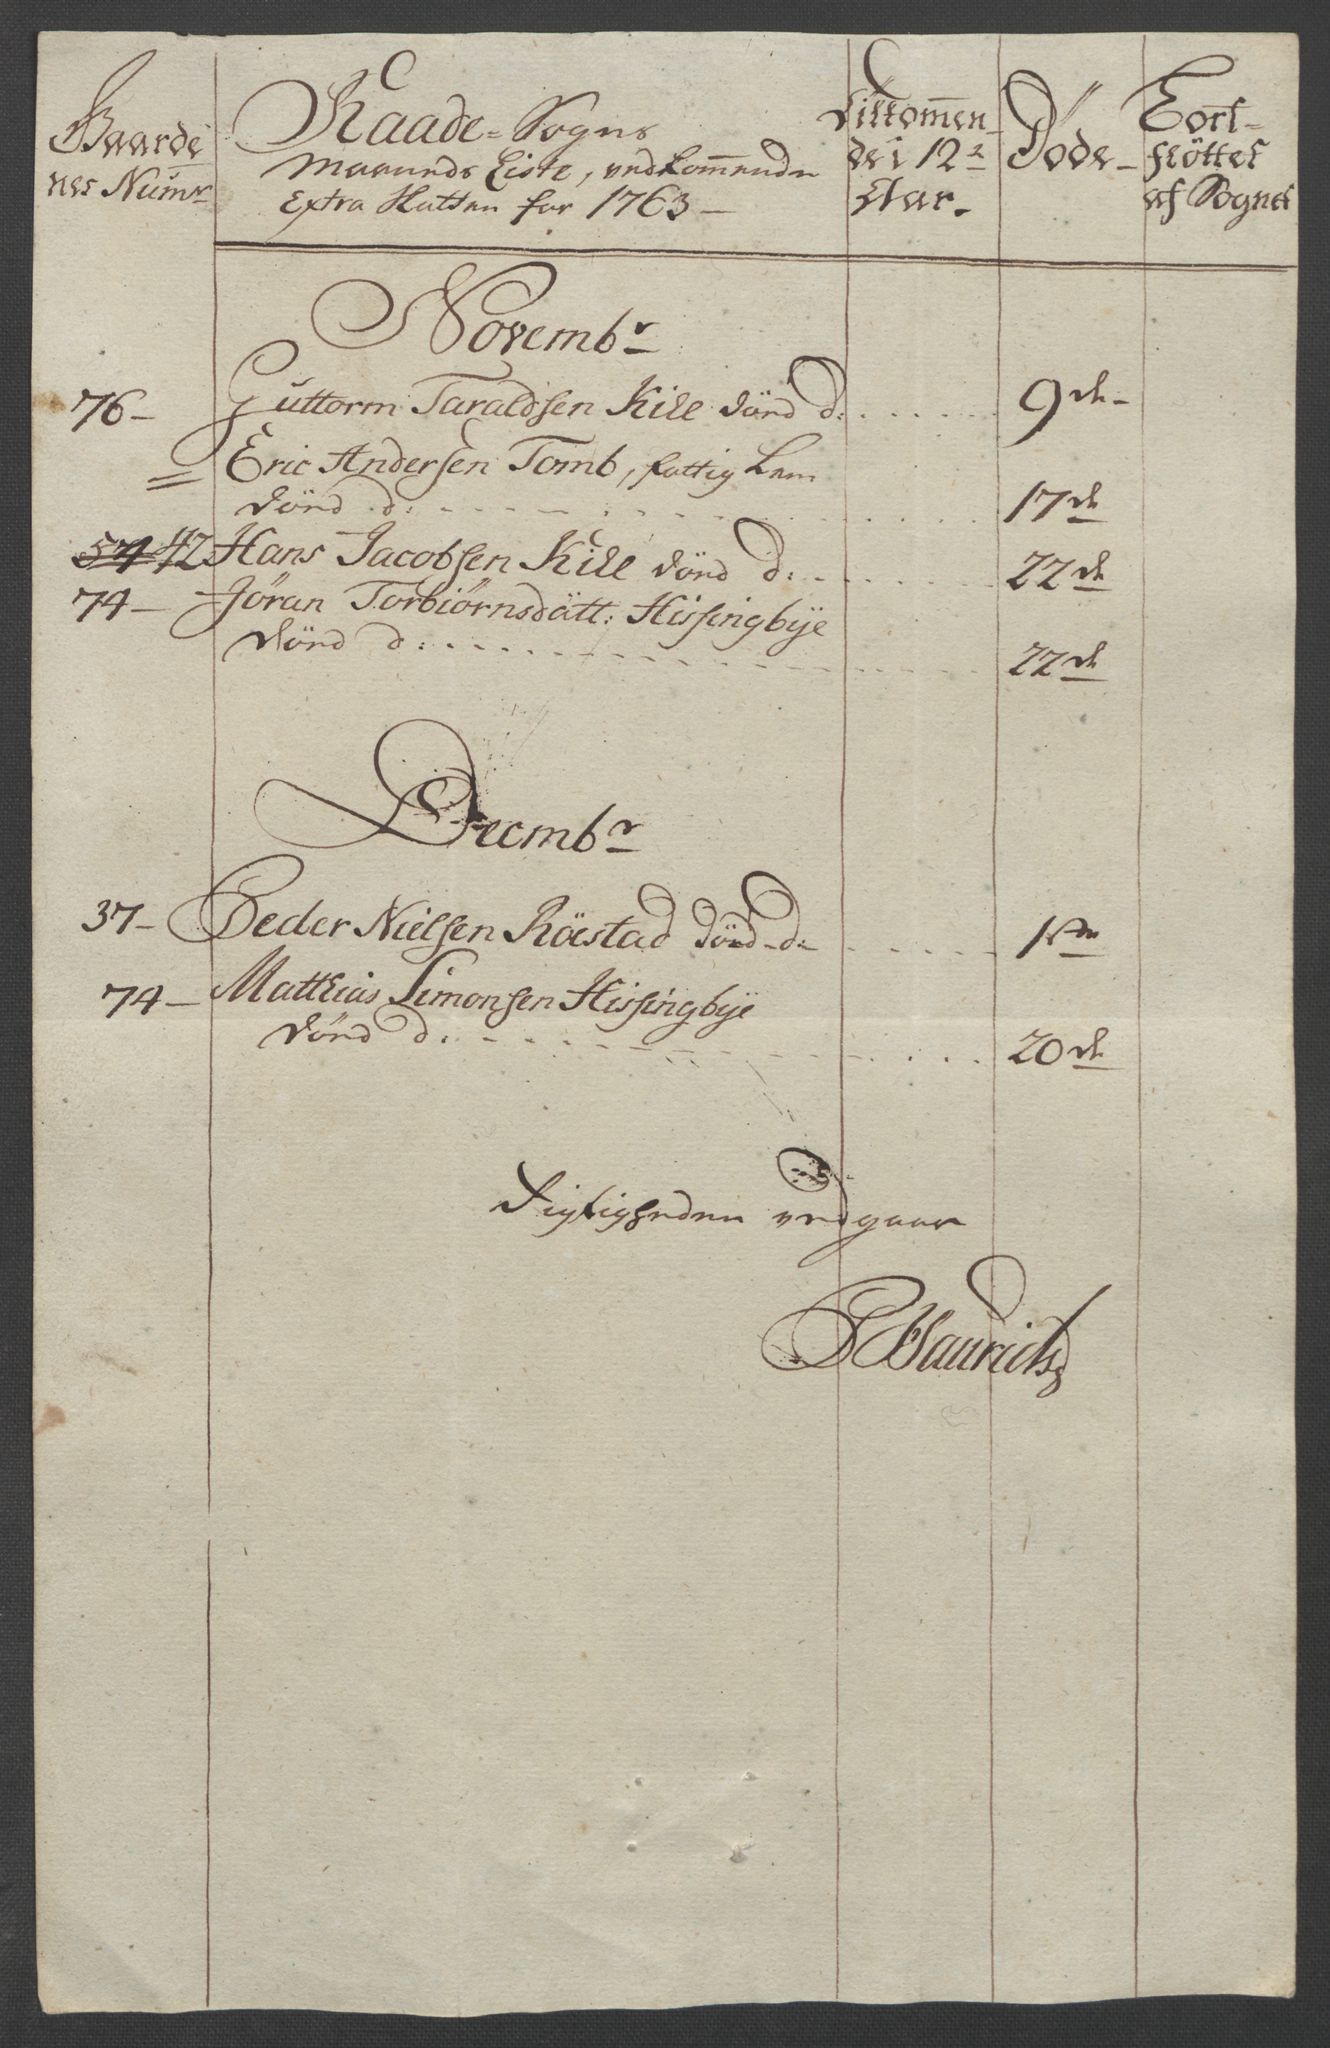 Gaarde
nes Numr
Raade = Sogns
Maaneds Liste, vedkommende
Extra Skatten for 1763 –
Tilkom̄en
de i 12te
Aar.
Döde –
Fort=
flöttet
af Sognet
Novembr
76 – Guttorm Taraldsen Kill dörd d: 9de –
= Eric Andersen Tomb, fattig Lem
dörd d: 17de
54 42 Hans Jacobsen Kill dörd d: 22de
74 – Jöran Torbiørnsdått: Hissingbÿe
dörd d: 22de
Decmbr
37 – Peder Nielsen Röestad dörd d: 1ste
74 – Matthias Simonsen Hissingbÿe
dörd d: 20de
Rigtigheden vedgaar